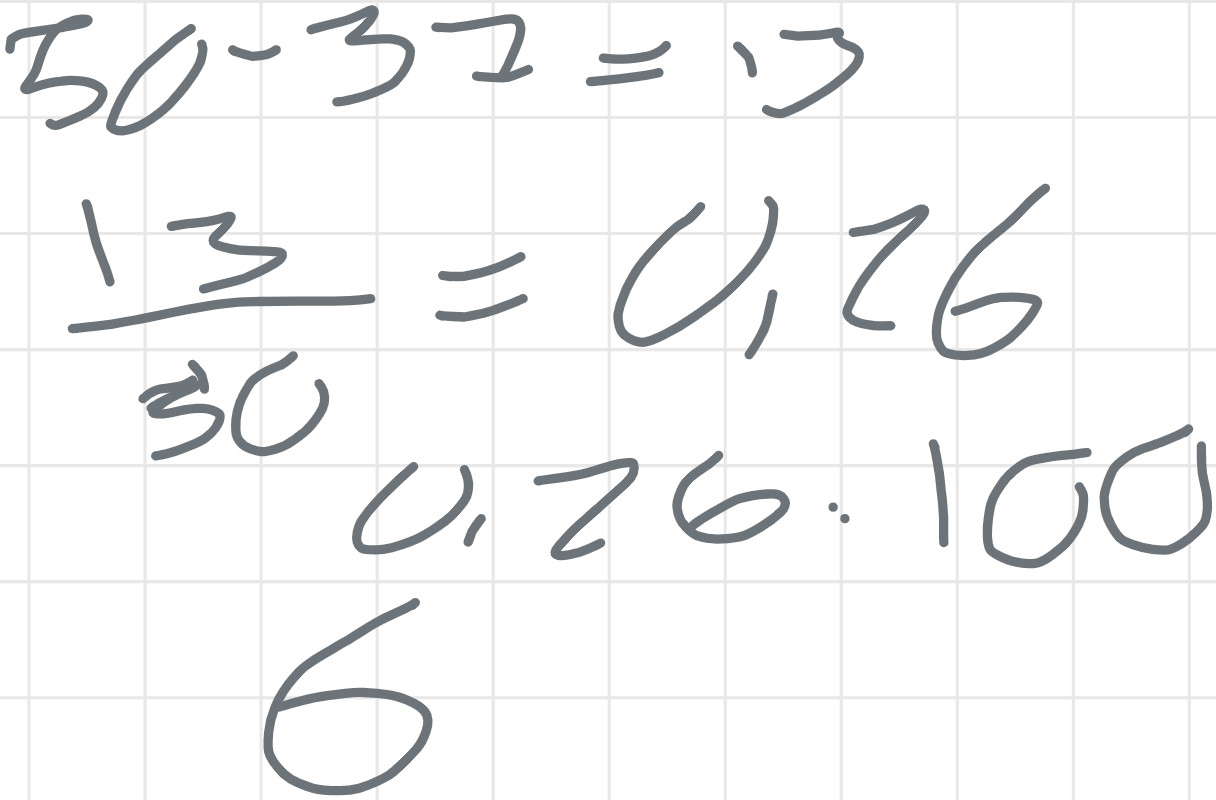 50-37=13
13/50=0,26
0,26:100
6